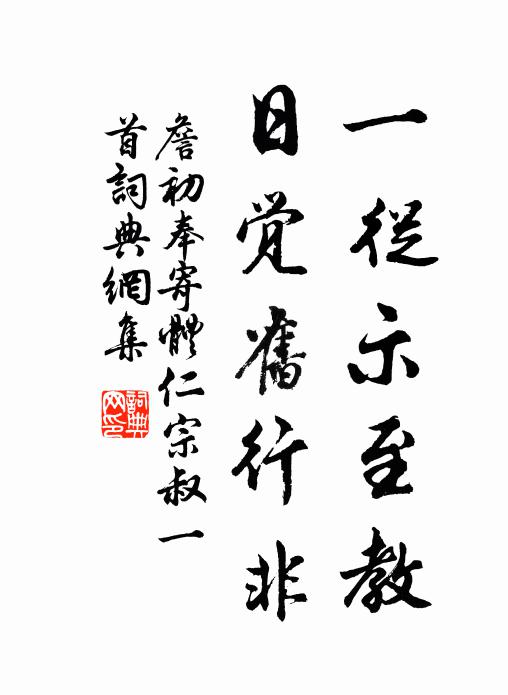 一從示至教
日覺舊行非
詹初奉寄體仁宗叔一
首詞典網集
詞典
网印